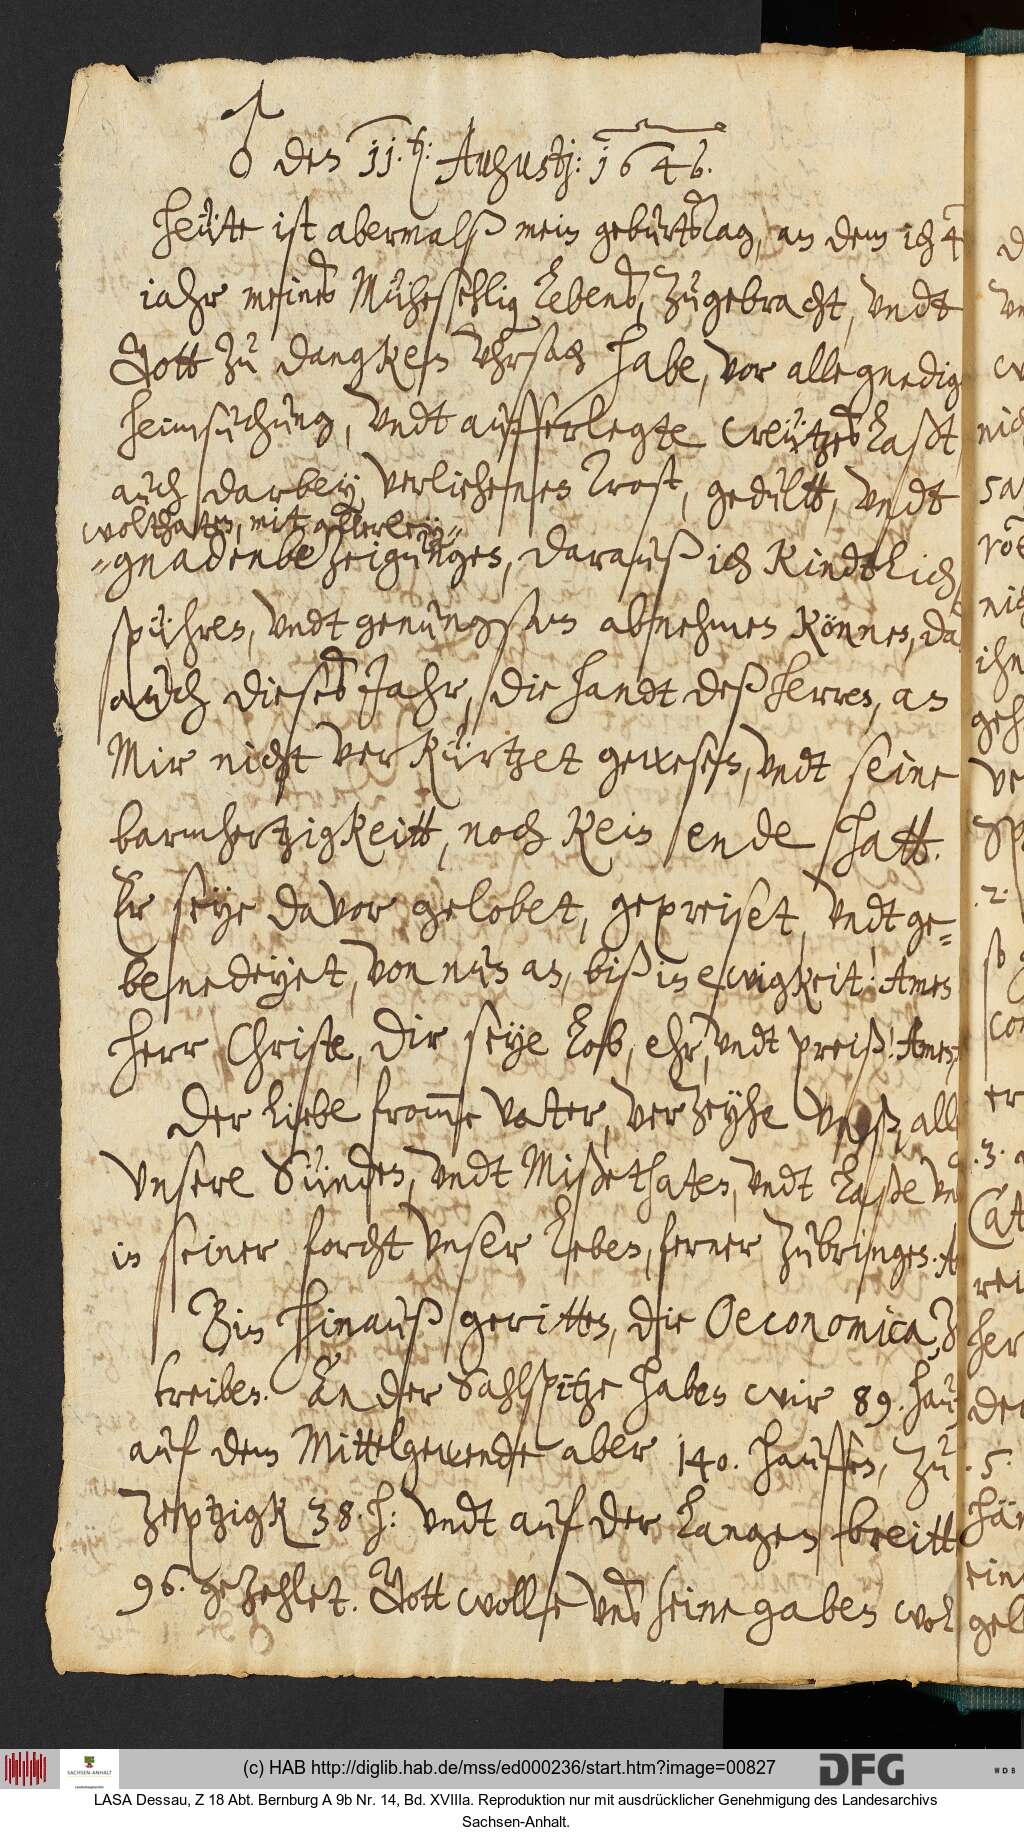 ♂ den 11. h: Augustj: 1646.
Heütte ist abermalß mein geburtstag, an dem ich 4
iahr meines Müheseehlig Lebens, zugebracht, undt
Gott zu dangken uhrsach habe, vor alle gnedig
heimsuchung, undt aufferlegte Creützes Last,
auch darbey, verliehenen Trost, gedultt, undt
wolthaten, mit allerley
gnadenbezeigungen, darauß ich Kindtlich
spühren, undt genungsam abnehmen Können, da
auch dieses Jahr, die handt deß Herren, an
Mir nicht verkürtzet gewesen, undt seine
barmhertzigkeitt, noch Kein ende hatt.
Er seye davor gelobet, gepreiset, undt ge-
benedeyet, von nun an, biß in ewigkeit! Amen
Herr Christe, dir seye Lob, ehr, undt preiß! Amen,
Der liebe from̅e Vater, verzeyhe unß, alle
unsere Sünden, undt Mißethaten, undt Laße un
in seiner forcht unser Leben, ferner zubringen. A
Bin hinauß geritten, die Oeconomica, z
treiben. An der Sahlspitze haben wir 89. hau
auf dem Mittelgewende aber 140. hauffen, zu
Zeptzigk 38. h: undt auf der Langen breitt
96. gezehlet. Gott wolle uns seine gaben wol
(c) HAB http://diglib.hab.de/mss/ed000236/start.htm?image=00827
SACHSEN-ANHALT
DFG
WDB
LASA Dessau, Z 18 Abt. Bernburg A 9b Nr. 14, Bd. XVIIIa. Reproduktion nur mit ausdrücklicher Genehmigung des Landesarchivs
Sachsen-Anhalt.